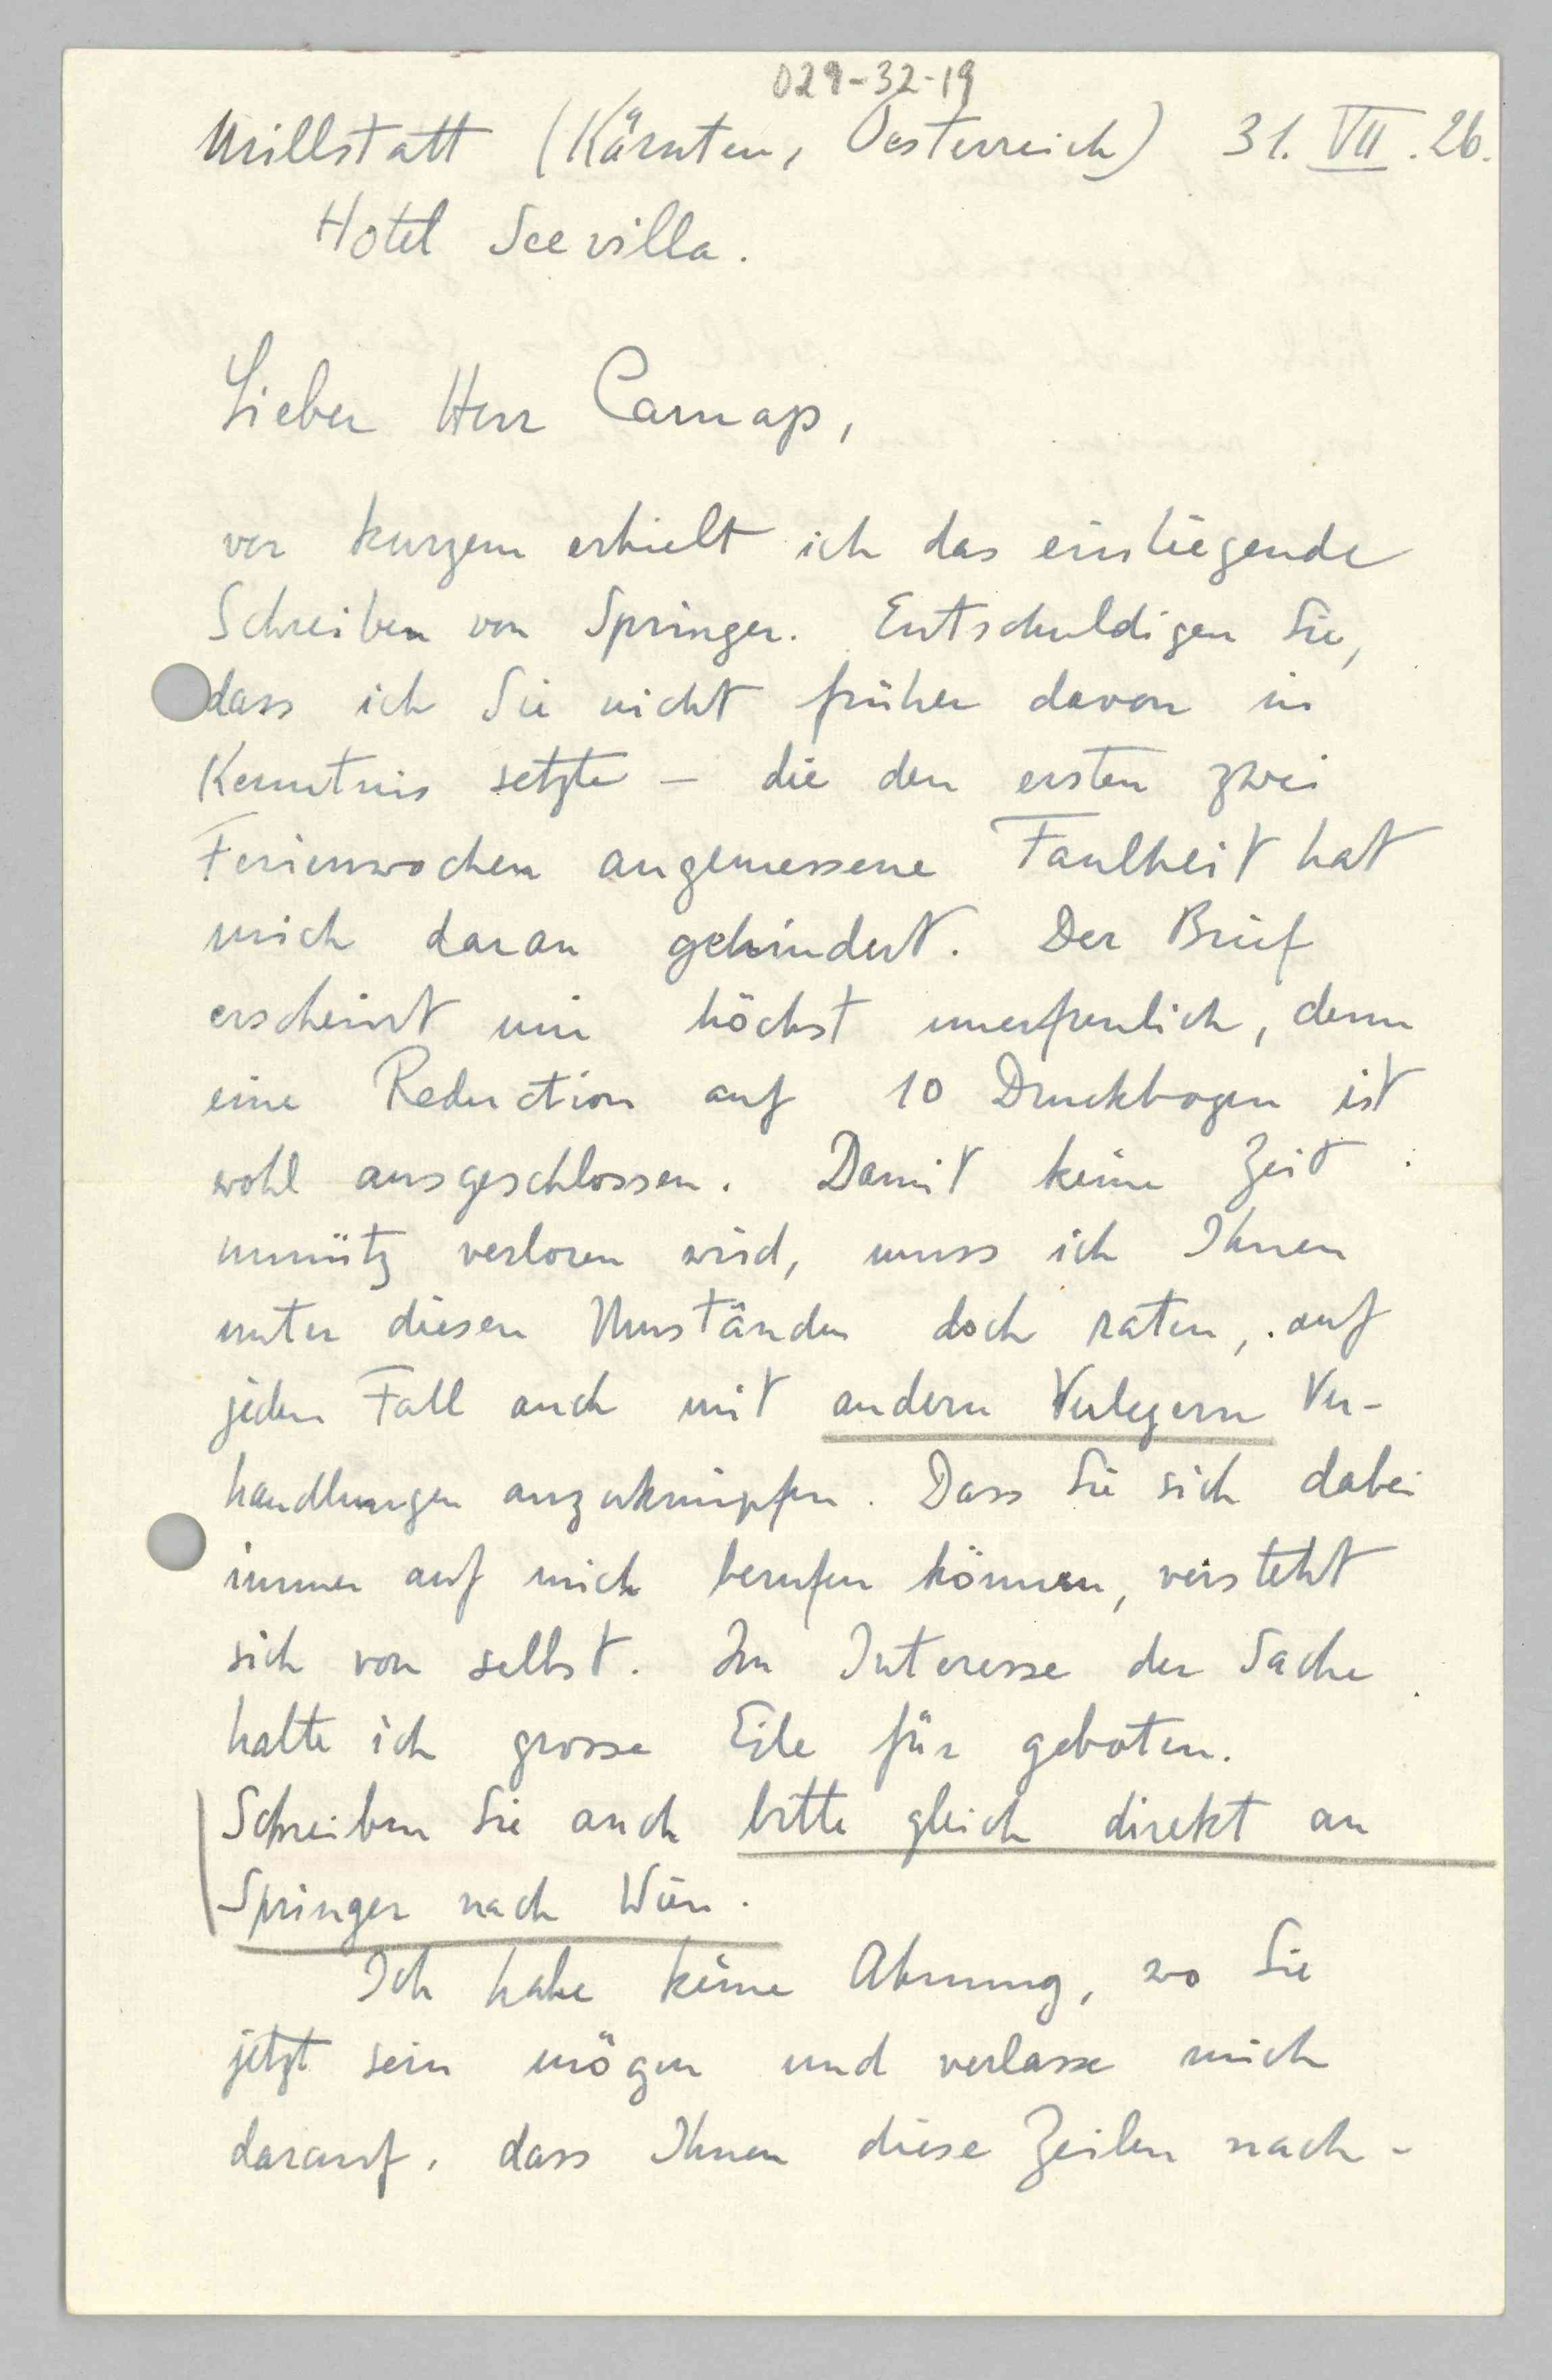 029-32-19
Millstatt (Kärnten, Oesterreich) 31. VII. 26.
Hotel Seevilla.
Lieber Herr Carnap,
vor kurzem erhielt ich das einliegende
Schreiben von Springer. Entschuldigen Sie,
dass ich Sie nicht früher davon in
Kenntnis setzte – die den ersten zwei
Ferienwochen angemessene Faulheit hat
mich daran gehindert. Der Brief
erscheint mir höchst unerfreulich, denn
eine Reduction auf 10 Druckbogen ist
wohl ausgeschlossen. Damit keine Zeit
unnütz verloren wird, muss ich Ihnen
unter diesen Umständen doch raten, auf
jeden Fall auch mit andern Verlegern Ver-
handlungen anzuknüpfen. Dass Sie sich dabei
immer auf mich berufen können, versteht
sich von selbst. Im Interesse der Sache
halte ich grosse Eile für geboten.
Schreiben Sie auch bitte gleich direkt an
Springer nach Wien.
Ich habe keine Ahnung, wo Sie
jetzt sein mögen und verlasse mich
darauf, dass Ihnen diese Zeilen nach-